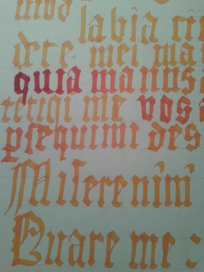 labia cir
dete mei ma
quia manus
tetiqi me vos
pſequimi des
Miſerenim
Quare me :